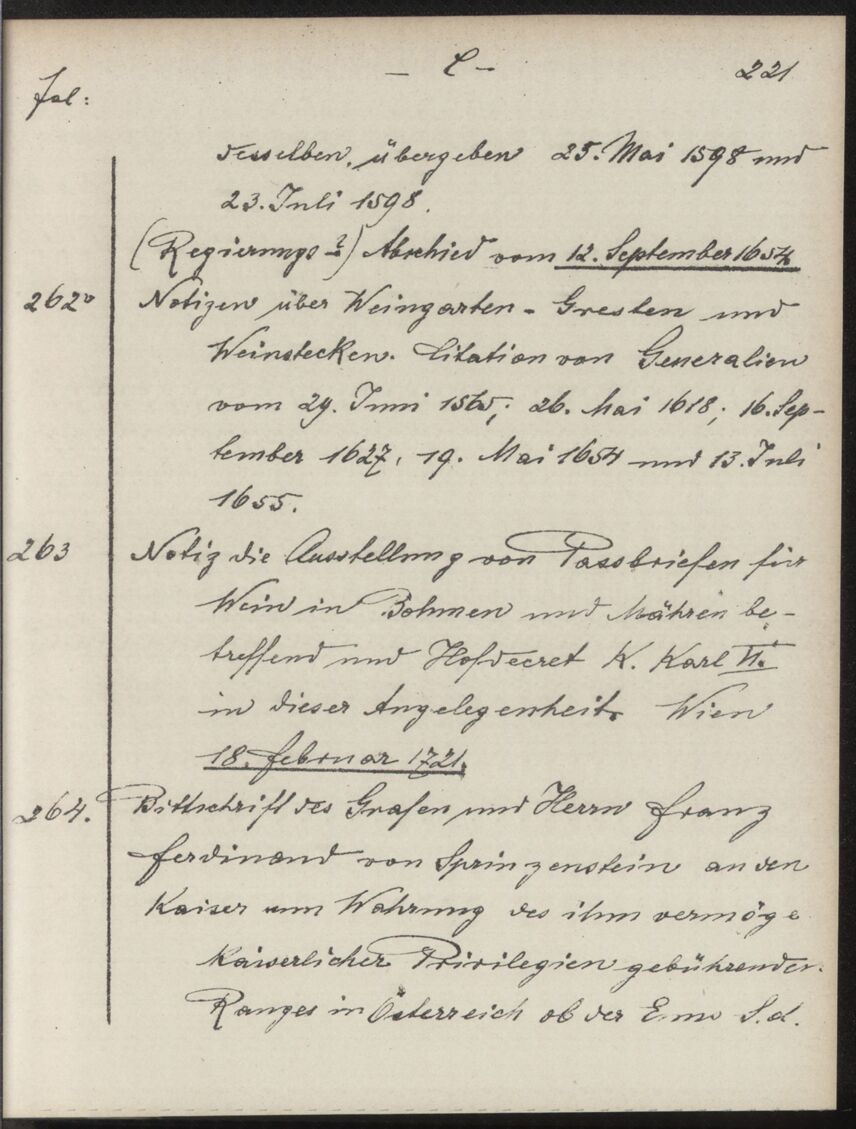 — C —
221
fol:
desselben, übergeben 25. Mai 1598 und
23. Juli 1598.
(Regierungs-?) Abschied vom 12. September 1654
262v Notizen über Weingarten-Gresten und
Weinstecken. Citation von Generalien
vom 29. Juni 1565; 26. Mai 1618; 16. Sep-
tember 1627, 19. Mai 1654 und 13. Juli
1655.
263 Notiz die Ausstellung von Passbriefen für
Wein in Böhmen und Mähren be-
treffend und Hofdecret K. Karl VI.
in dieser Angelegenheit. Wien
18. Februar 1721.
264. Bittschrift des Grafen und Herrn Franz
Ferdinand von Sprinzenstein an den
Kaiser um Wahrung des ihm vermöge
kaiserlicher Privilegien gebührenden
Ranges in Österreich ob der Enns S.d.